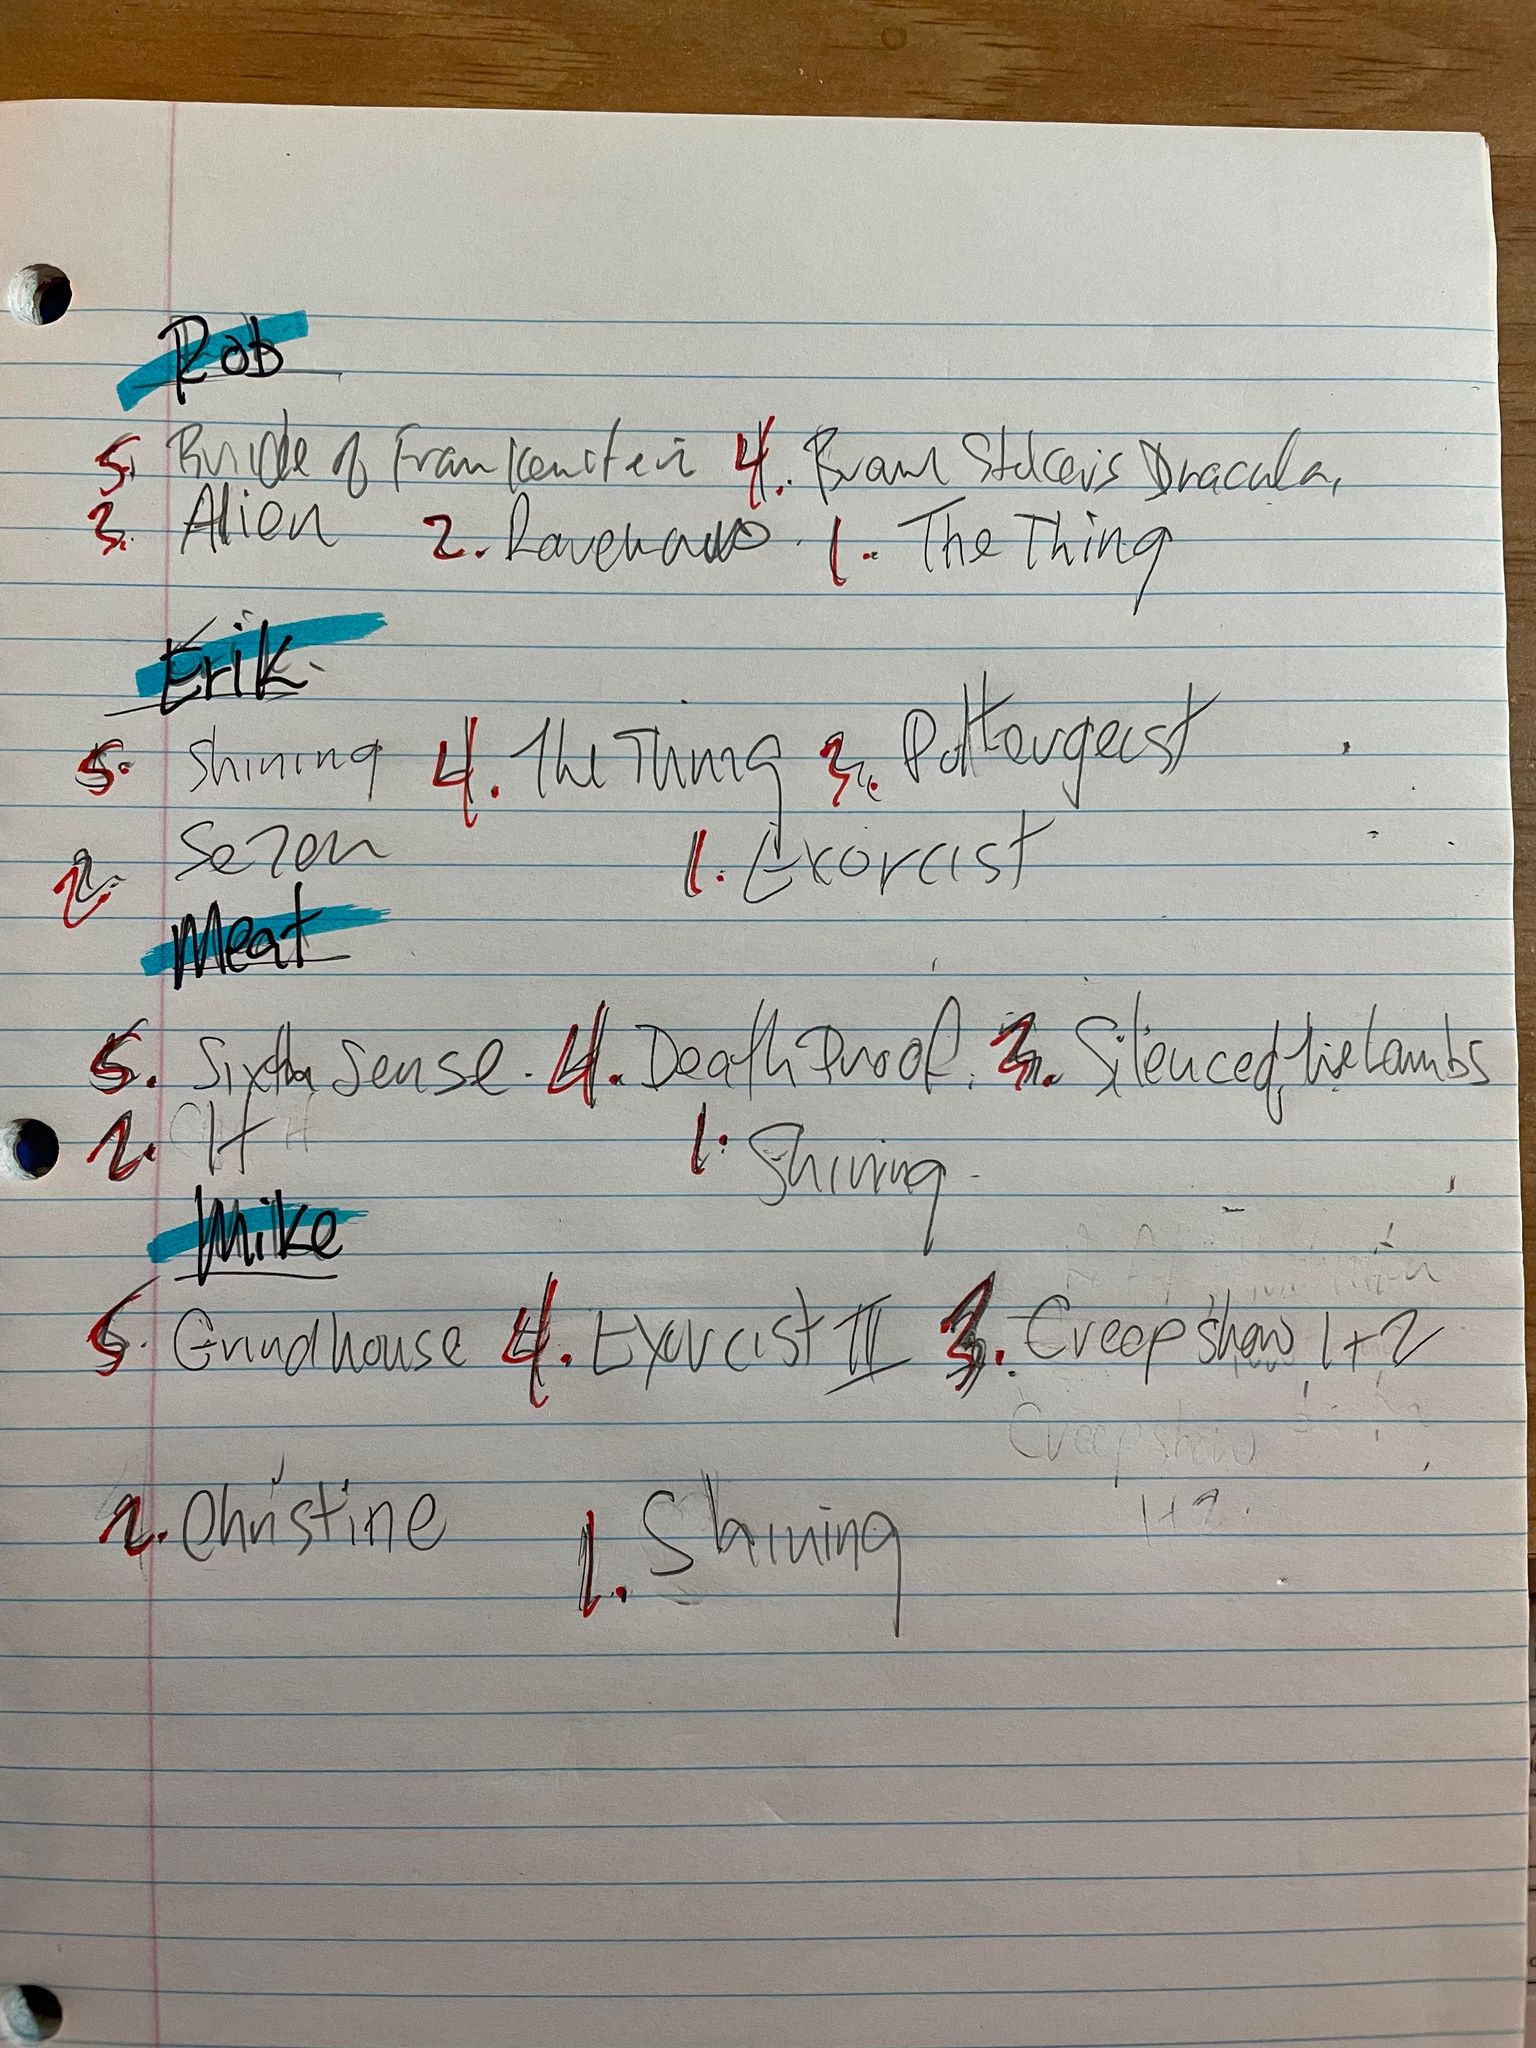 Rob
5. Bride of Frankenstein 4. Bram Stokers Dracula,
3. Alien 2. Ravenous. 1. The Thing
Erik
5. Shining 4. The Thing 3. Poltergeist
2. Se7en 1. Exorcist
Meat
5. Sixth Sense. 4. Death Proof. 3. Silence of the Lambs
2. It 1. Shining
Mike
5. Grindhouse 4. Exorcist III 3. Creepshow 1+2
Creepshow
1+2.
2. Christine 1. Shining